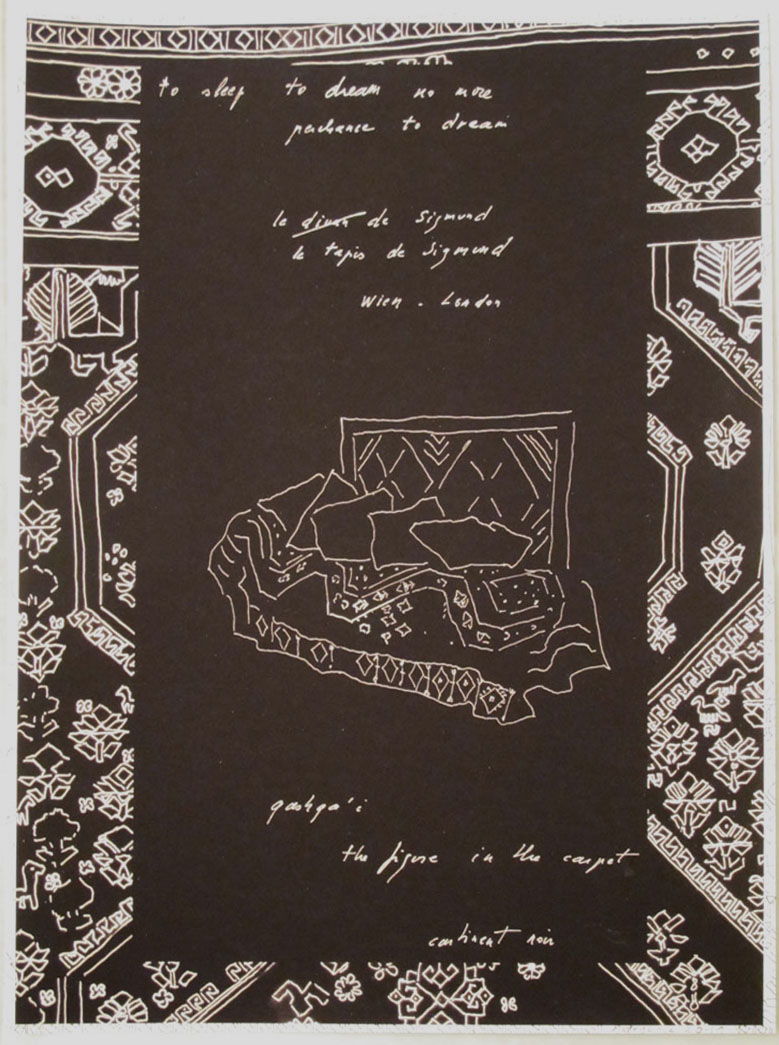 to sleep to dream no more
perchance to dream
le divan de Sigmund
le tapis de Sigmund
Wien - London
qashqa'i
the figure in the carpet
continent noir